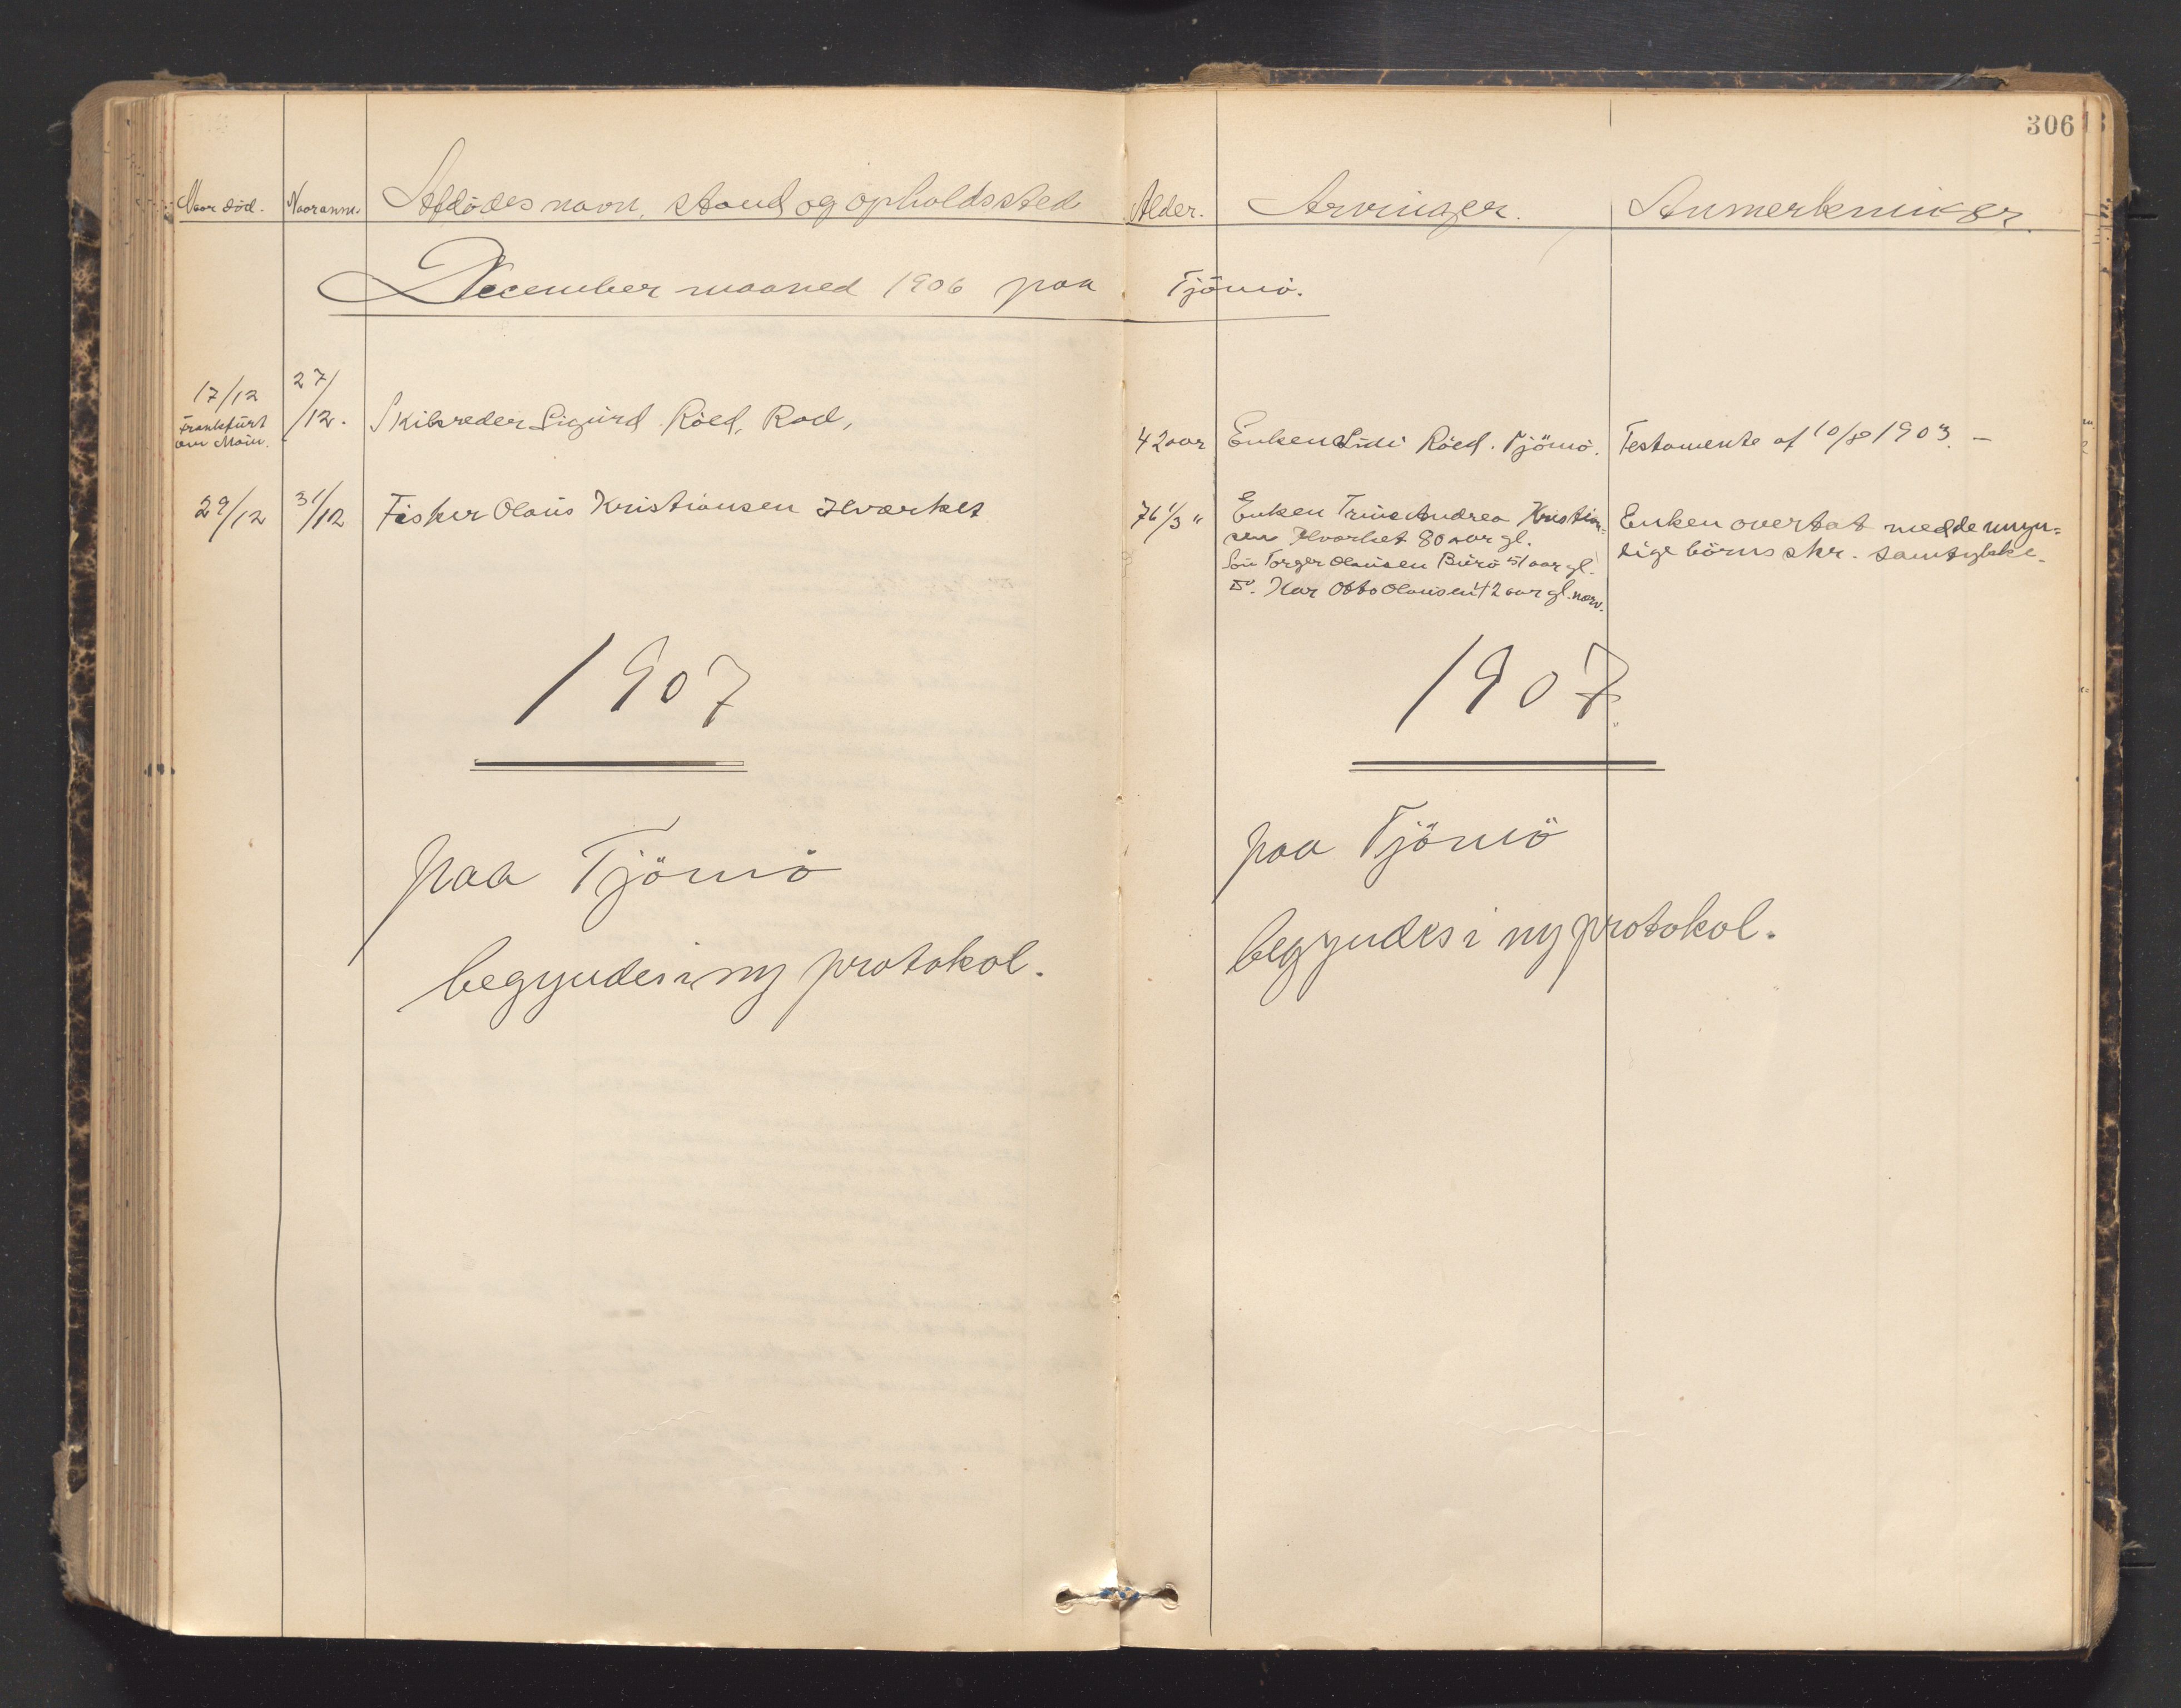 306
Naar död. Naar anm. Afdödes navn, stand og opholdssted Alder. Arvinger. Anmerkninger.
December maaned 1906 paa Tjömö.
17/12 Frankfurt am Main. 27/12. Skibsreder Sigurd Röed, Rød, 42 aar Enken Röed. Tjömö. Testamente af 1903. —
29/12 31/12 Fisker Olaus Kristiansen Hvarket 76 1/3 " Enken Trine Andrea Kristian= Enken overtat med de myn=
sen Hvarket 80 aar gl. lige börns skr. samtykke.
Sön Torger Olausen Burö 51 aar gl.
Do. Kar Otto Olausen 42 aar gl. nærv.
1907 1907.
paa Tjömö paa Tjömö
begyndes i ny protokol. begyndes i ny protokol.